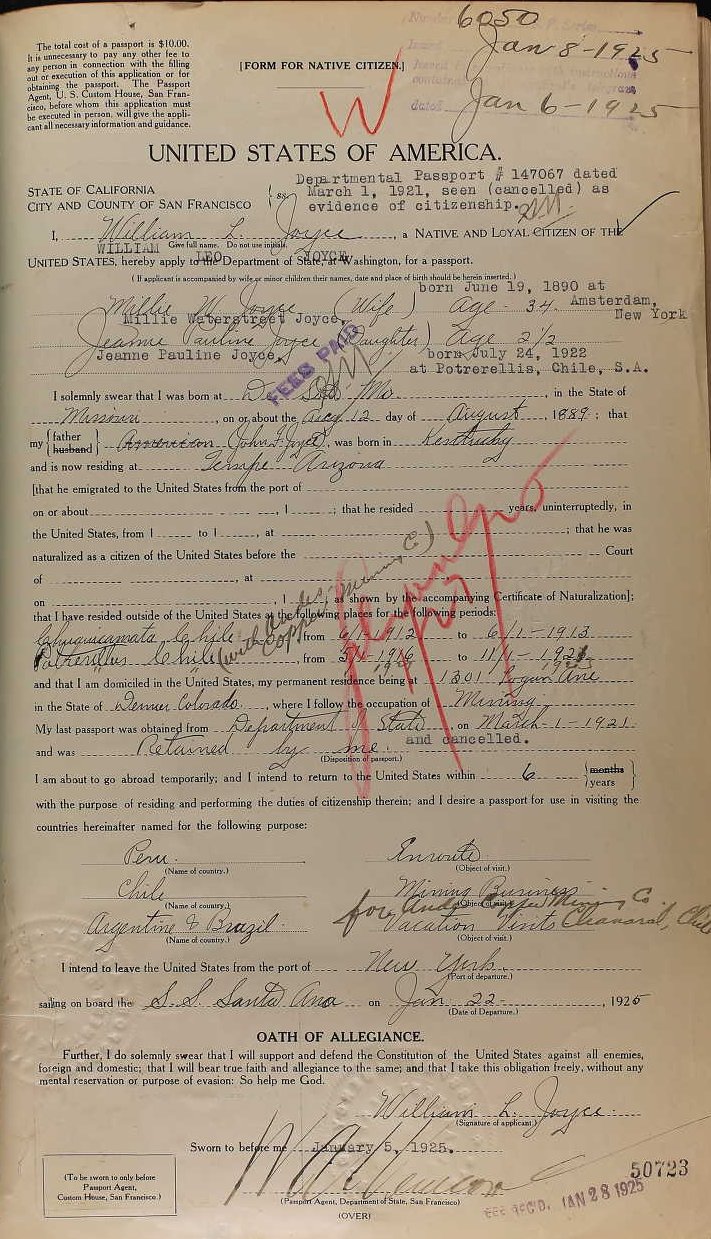 6050
Jan 8-1925
The total cost of a passport is $10.00.
It is unnecessary to pay any other fee to
any person in connection with the filling
out or execution of this application or for
obtaining the passport. The Passport
Agent, U. S. Custom House, San Fran-
cisco, before whom this application must
be executed in person, will give the appli-
cant all necessary information and guidance.
[FORM FOR NATIVE CITIZEN.]
dated
Jan 6-1925
W
UNITED STATES OF AMERICA.
Departmental Passport # 147067 dated
STATE OF CALIFORNIA
ss
March 1, 1921, seen (cancelled) as
CITY AND COUNTY OF SAN FRANCISCO
evidence of citizenship.
I, William L. Joyce, a NATIVE AND LOYAL CITIZEN OF THE
Give full name. Do not use initials.
WILLIAM LEO JOYCE
UNITED STATES, hereby apply to the Department of State, at Washington, for a passport.
(If applicant is accompanied by wife or minor children their names, date and place of birth should be herein inserted.)
born June 19, 1890 at
Millie W. Joyce (Wife) Age - 34 Amsterdam,
Millie Waterstreet Joyce, New York
Jeanne Pauline Joyce (Daughter) Age 2 1/2
Jeanne Pauline Joyce, born July 24, 1922
at Potrerellis, Chile, S.A.
FEES PAID
I solemnly swear that I was born at Mo, in the State of
Missouri, on or about the 12 day of August, 1889; that
my father husband American John F Joyce, was born in Kentucky
and is now residing at Tempe Arizona
[that he emigrated to the United States from the port of
on or about , 1 ; that he resided years, uninterruptedly, in
the United States, from 1 to 1 , at ; that he was
naturalized as a citizen of the United States before the Court
of , at
on , 1 , as shown by the accompanying Certificate of Naturalization];
that I have resided outside of the United States at the following places for the following periods:
Chuquicamata Chile, from 6/1-1912 to 6/1-1913
Potrerillos Chile (with Andes Copper Mining Co), from 1916 to 11/1-
and that I am domiciled in the United States, my permanent residence being at 1301 Logan Ave
in the State of Denver Colorado, where I follow the occupation of Mining
My last passport was obtained from Department of State, on March-1-1921
and was Retained by me. and cancelled.
(Disposition of passport.)
I am about to go abroad temporarily; and I intend to return to the United States within 6 months years
with the purpose of residing and performing the duties of citizenship therein; and I desire a passport for use in visiting the
countries hereinafter named for the following purpose:
Peru. Enroute
(Name of country.) (Object of visit.)
Chile Mining Business
(Name of country.) (Object of visit.)
for Andes Copper Mining Co
Argentine & Brazil. Vacation Visits Chanaral, Chile
(Name of country.) (Object of visit.)
I intend to leave the United States from the port of New York.
(Port of departure.)
sailing on board the S.S. Santa Ana on Jan 22-, 1925
(Date of Departure.)
OATH OF ALLEGIANCE.
Further, I do solemnly swear that I will support and defend the Constitution of the United States against all enemies,
foreign and domestic; that I will bear true faith and allegiance to the same; and that I take this obligation freely, without any
mental reservation or purpose of evasion: So help me God.
William L. Joyce
(Signature of applicant.)
Sworn to before me January 5, 1925.
50723
(To be sworn to only before
Passport Agent,
Custom House, San Francisco.)
(Passport Agent, Department of State, San Francisco)
FEE REC'D. JAN 28 1925
(OVER)